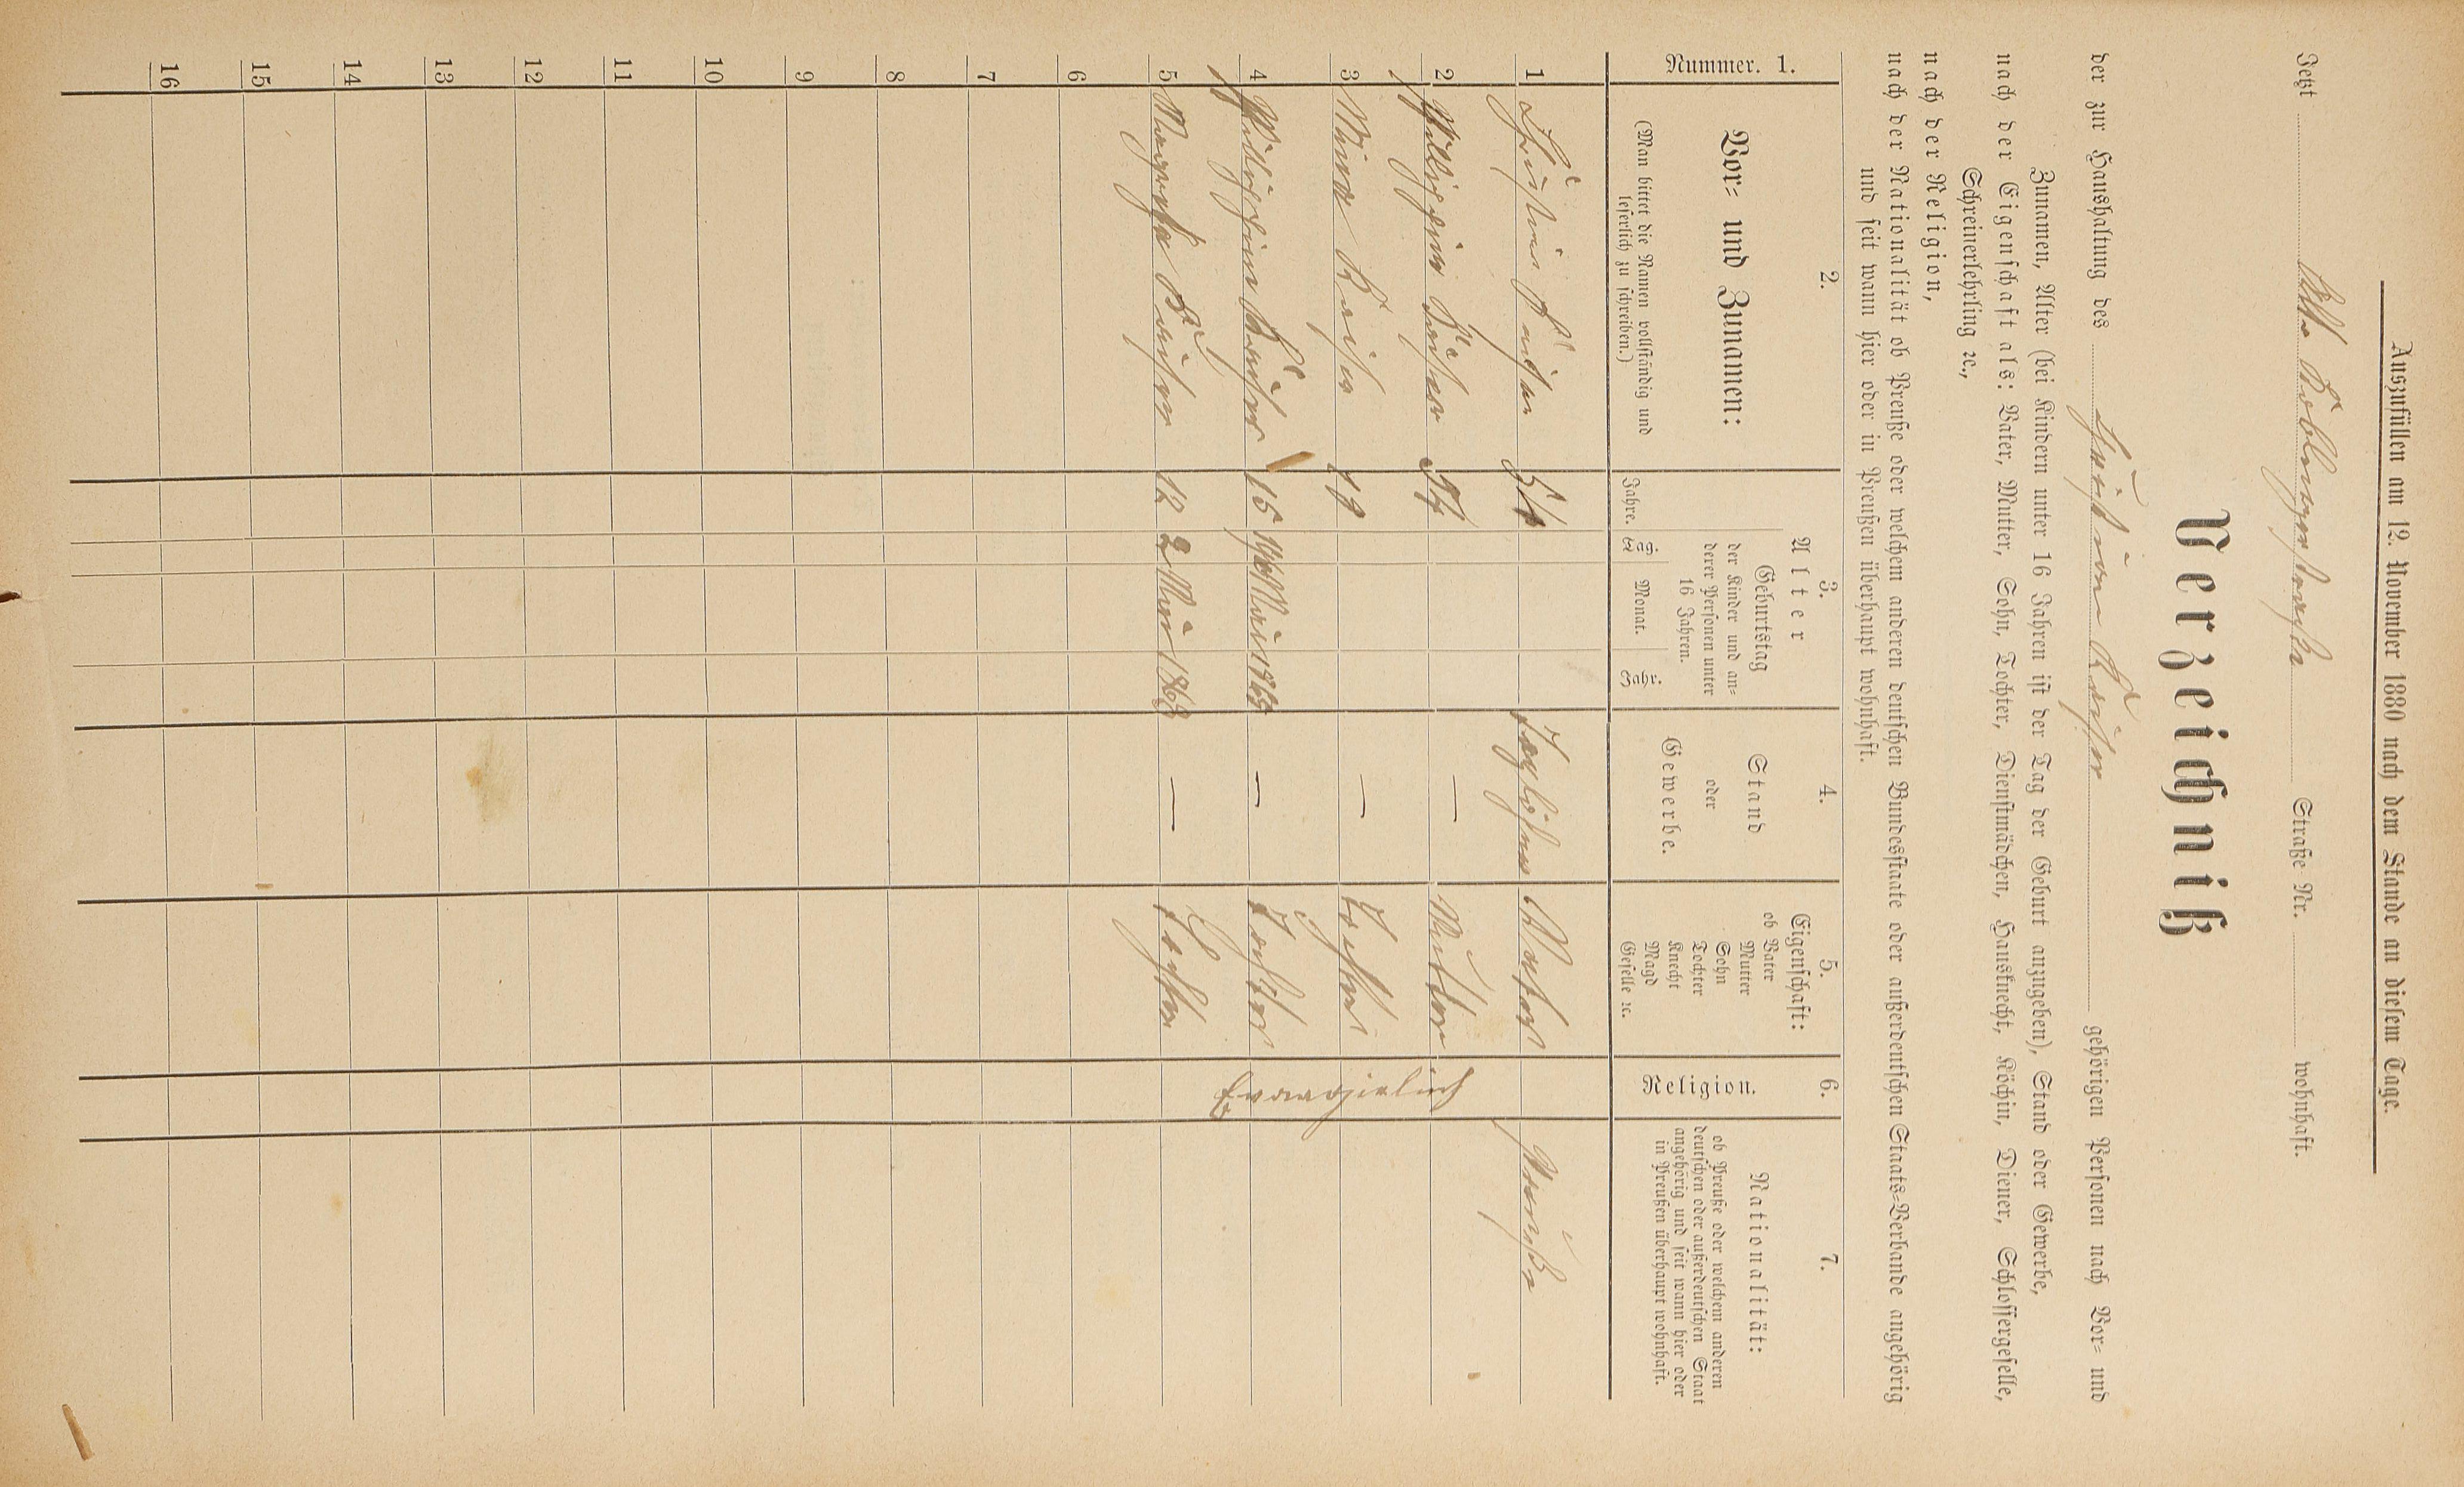 Auszufüllen am 12. November 1880 nach dem Stande an diesem Tage.
Jetzt Alte Koblenzerstraße Straße Nr. wohnhaft.
Verzeichniß
der zur Haushaltung des Käufer gehörigen Personen nach Vor= und
Zunamen, Alter (bei Kindern unter 16 Jahren ist der Tag der Geburt anzugeben), Stand oder Gewerbe,
nach der Eigenschaft als: Vater, Mutter, Sohn, Tochter, Dienstmädchen, Hausknecht, Köchin, Diener, Schlossergeselle,
Schreinerlehrling ꝛc.,
nach der Religion,
nach der Nationalität ob Preuße oder welchem anderen deutschen Bundesstaate oder außerdeutschen Staats=Verbande angehörig
und seit wann hier oder in Preußen überhaupt wohnhaft.
Nummer. 1.
2.
Vor= und Zunamen:
(Man bittet die Namen vollständig und
leserlich zu schreiben.)
3.
Alter
Jahre.
Geburtstag
der Kinder und an=
derer Personen unter
16 Jahren.
Tag. Monat. Jahr.
4.
Stand
oder
Gewerbe.
5.
Eigenschaft:
ob Vater
Mutter
Sohn
Tochter
Knecht
Magd
Geselle ꝛc.
6.
Religion.
7.
Nationalität:
ob Preuße oder welchem anderen
deutschen oder außerdeutschen Staat
angehörig und seit wann hier oder
in Preußen überhaupt wohnhaft.
1 54 Taglöhner Vater Preuße
2 54 — Mutter
3 19 — Tochter
4 15 Mai 1865 — Tochter
5 12 2 1868 — Tochter
Evangelisch
6
7
8
9
10
11
12
13
14
15
16